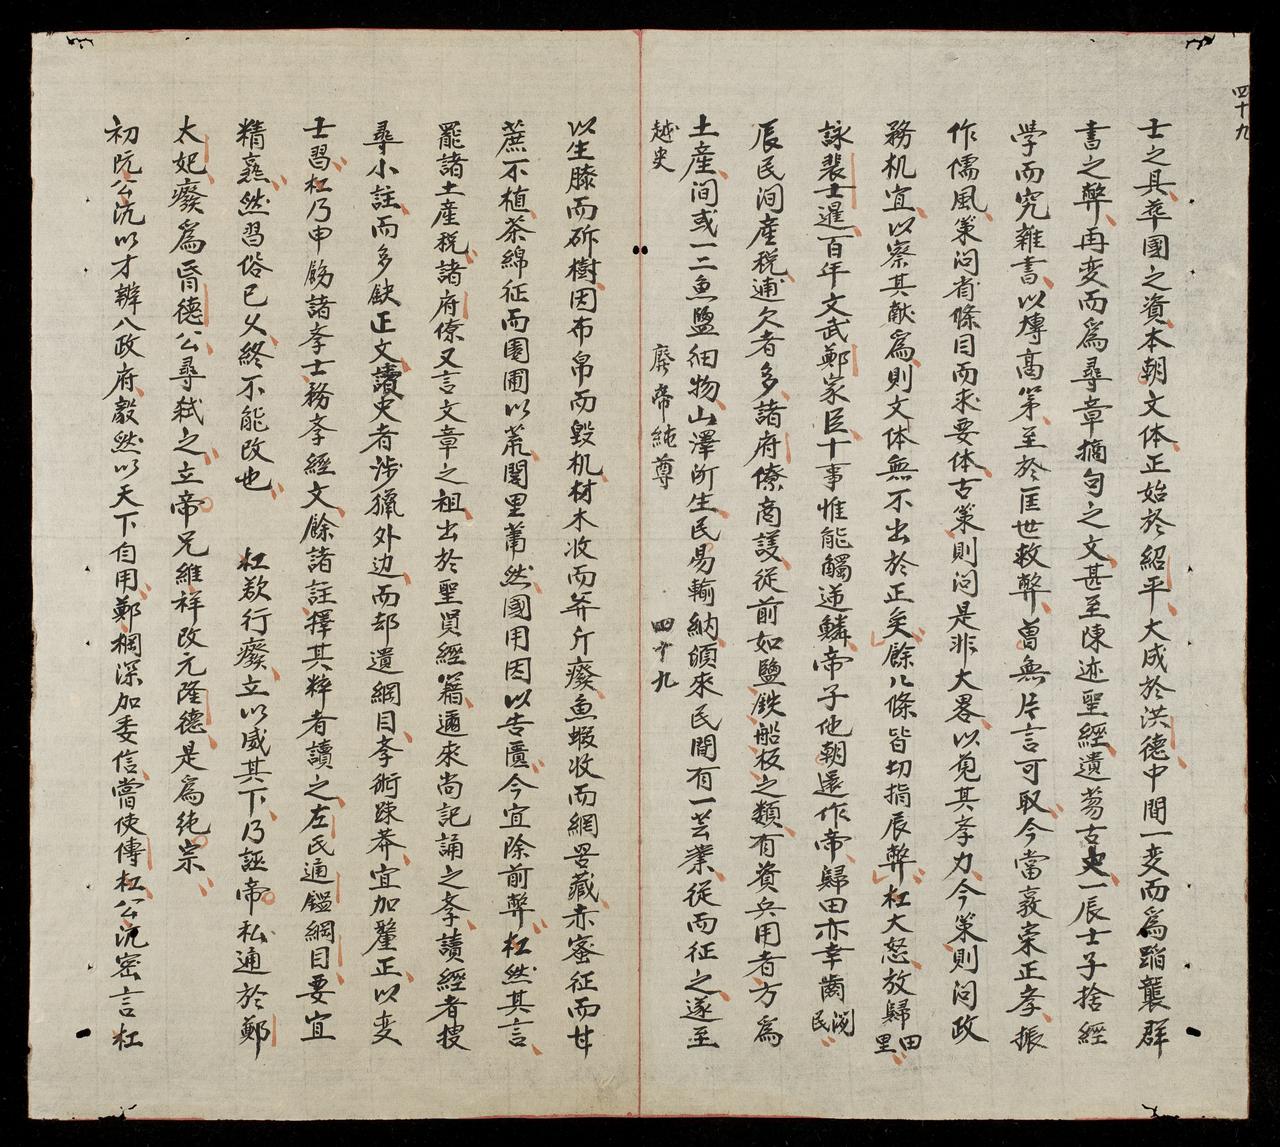 四十九
士之具葬國之資本朝文体正始於紹平大成於洪德中間一变而爲蹈襲群
書之弊再变而爲尋章摘句之文甚至陳迹聖經遺芴古史一辰士子捨經
学而究雜書以塼高第至於匡世救弊曾無片言可取今當敦崇正孝振
作儒風策问省條目而求要体古策則问是非大畧以覓其孝力今策則问政
務机宜以察其猷爲則文体無不出於正矣餘八條皆切指辰弊杠大怒放歸田里
詠裴士暹百年文武鄭家臣十事惟能觸逆鱗帝子他朝還作帝歸田亦幸齒浅民
辰民间産税逋欠者多諸府僚商議従前如鹽鉄船板之類有資兵用者方為
土産间或一二魚鹽細物山澤所生民易輸納頒來民間有一芸業従而征之遂至
越史 廢帝純尊 四十九
以生膝而斫樹因布帛而毀机材木收而斧斤癈魚蝦收而網罟藏赤蜜征而甘
蔗不植茶綿征而園圃以荒閭里蕭然國用因以告匱今宜除前弊杠然其言
罷諸土産税諸府僚又言文章之祖出於聖贤經籍邇來尚記誦之孝讀經者搜
尋小註而多缺正文讀史者涉獵外边而却遺綱目孝術踈莽宜加釐正以变
士習杠乃申飭諸孝士務孝經文餘諸註擇其粹者讀之左氏通鑑綱目要宜
精熹然習俗已乆終不能改也 杠欲行癈立以威其下乃誣帝私通於鄭
太妃癈爲昏德公尋弑之立帝兄維祥改元隆德是爲純宗
初阮公沆以才辨八政府毅然以天下自用鄭棡深加委信嘗使傅杠公沆密言杠